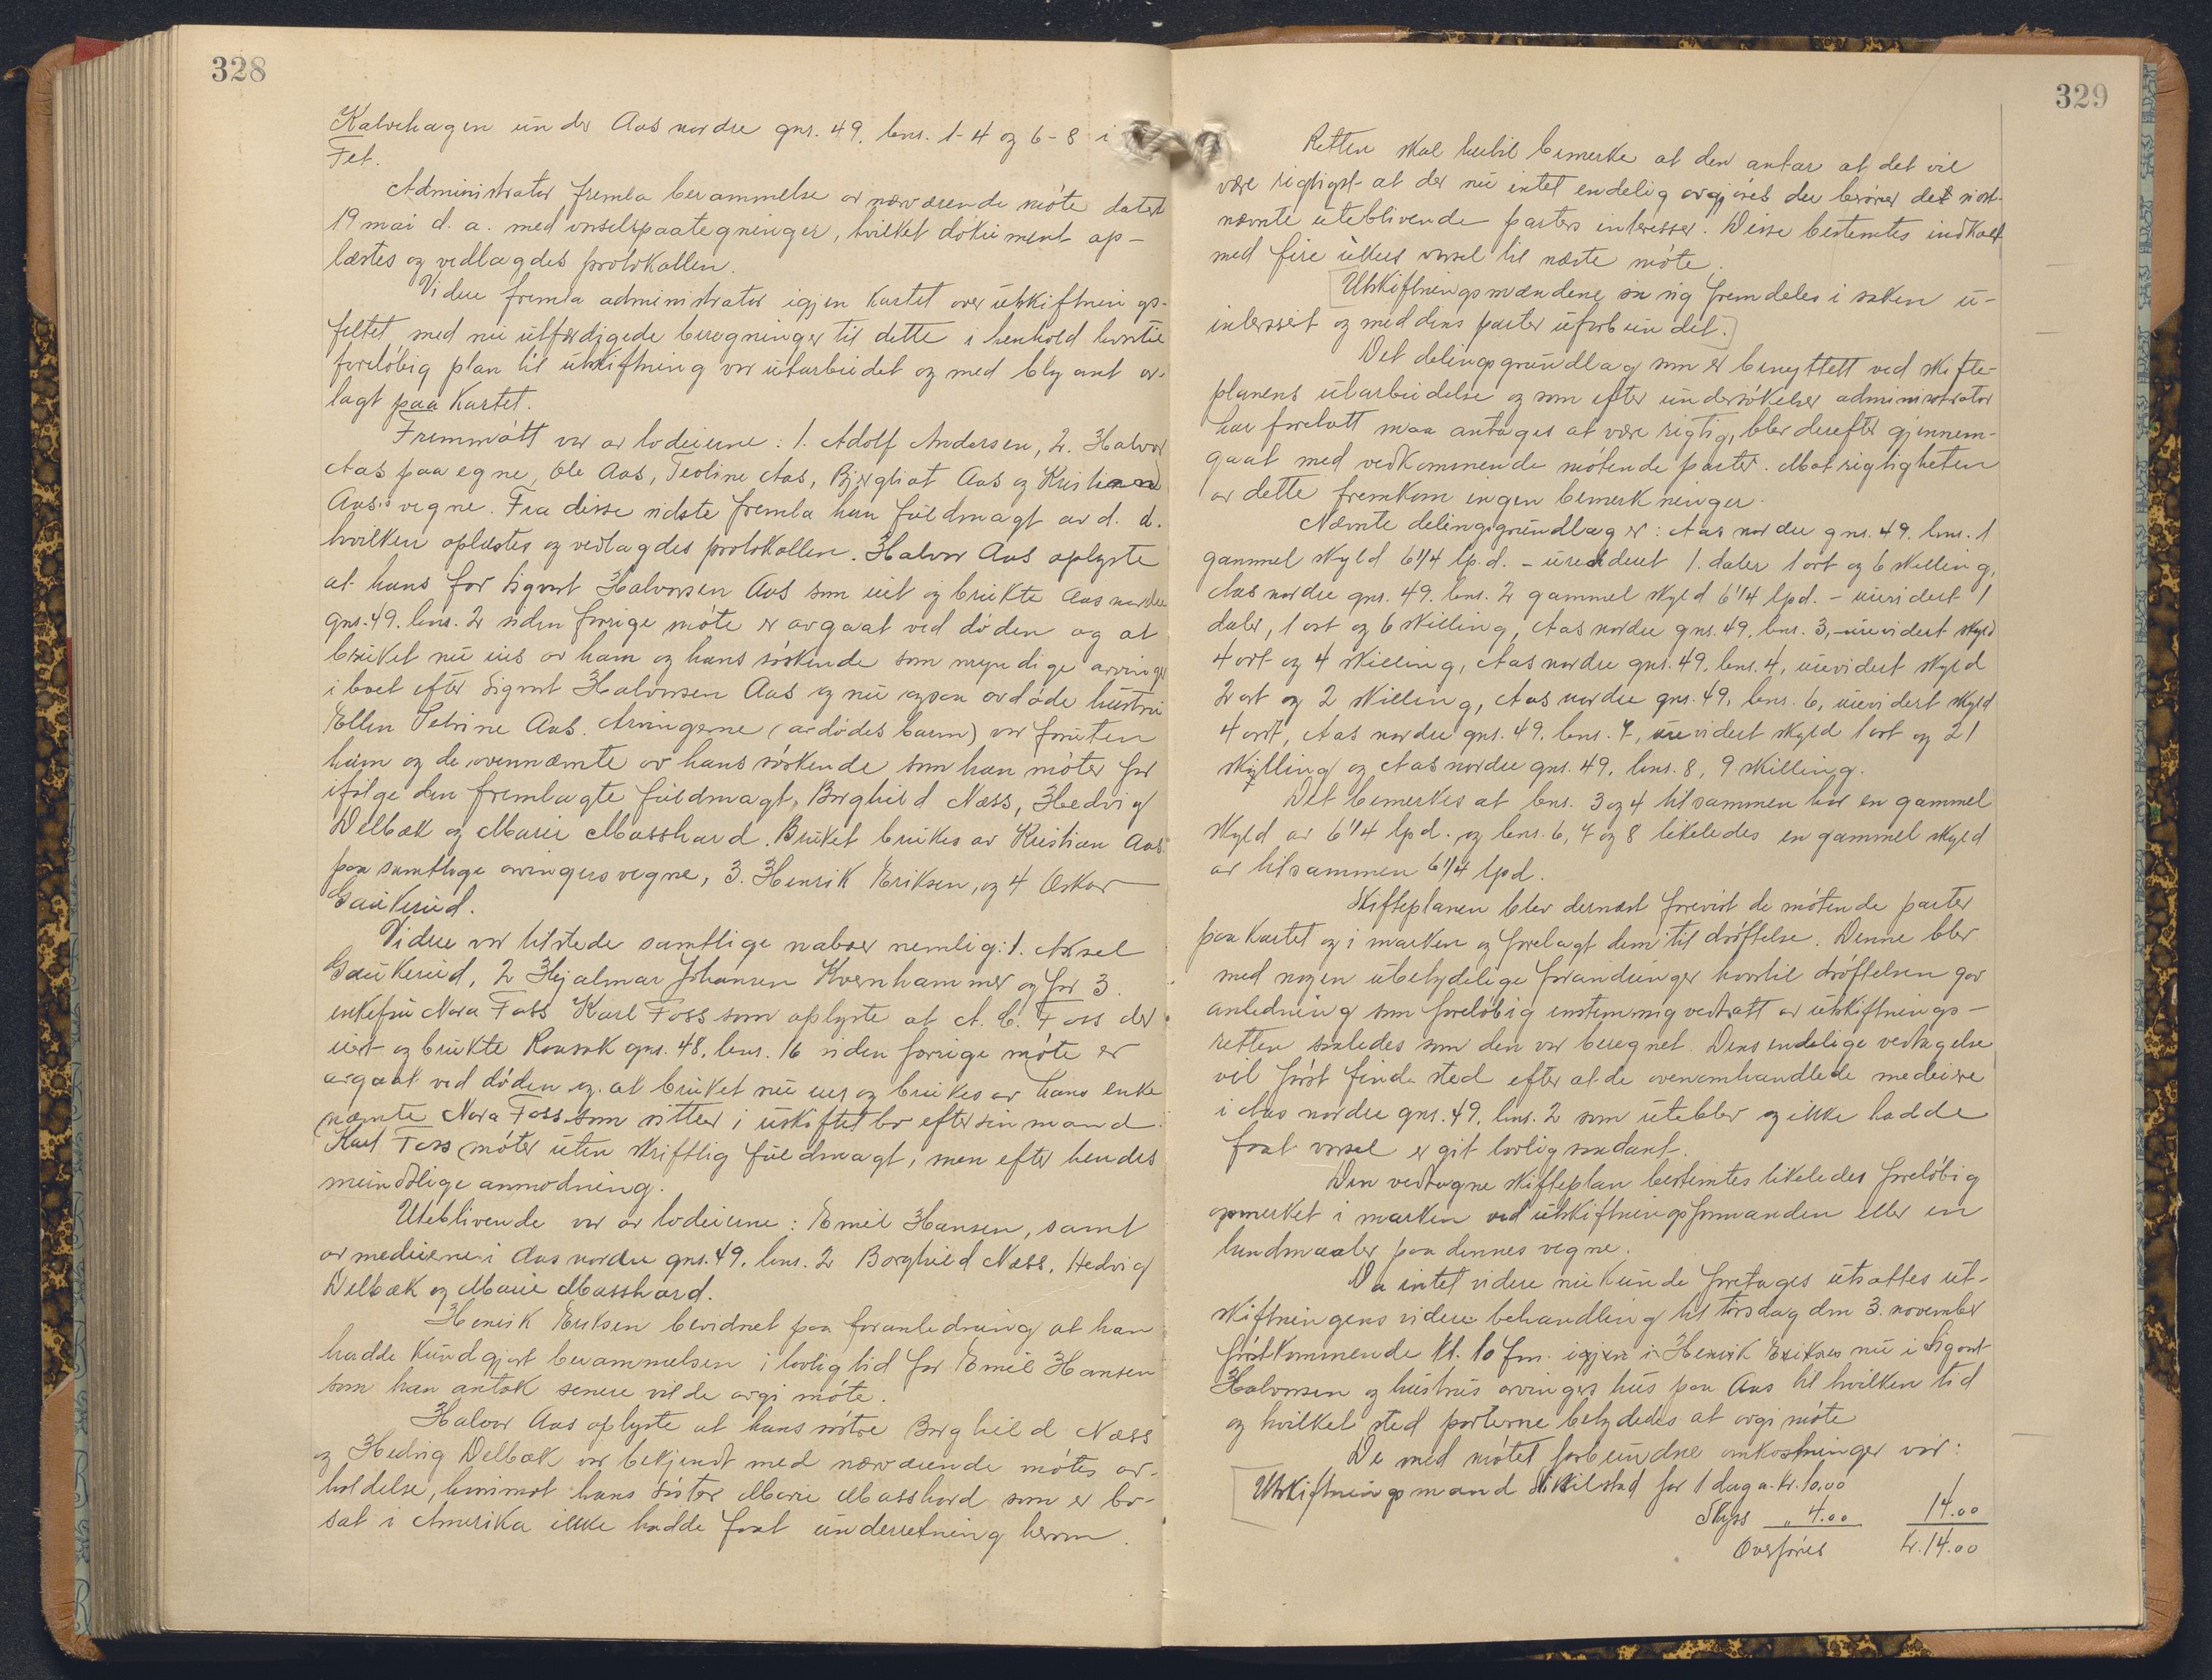 328
Kalvehagen under Aas nordre gnr. 49. bnr. 1-4 og 6-8 i
Fet.
Administrator fremla berammelse av nærværende møte datert
19 mai d. a. med varselspaategninger, hvilket dokument op-
læstes og vedlagdes protokollen.
Videre fremla administrator igjen kartet over utskiftnings-
feltet med nu utferdigede beregninger til dette i henhold hvortil
foreløbig plan til utskiftning var utarbeidet og med blyant av-
lagt paa kartet.
Fremmøtt var av lodeierne: 1. Adolf Andersen, 2. Halvor
Aas paa egne, Ole Aas, Teoline Aas, Bjergliot Aas og Kristian
Aas's vegne. Fra disse sidste fremla han fuldmagt av d. d.
hvilken oplæstes og vedlagdes protokollen. Halvor Aas oplyste
at hans far Sigvart Halvorsen Aas som eiet og brukte Aas nordre
gnr. 49. bnr. 2 siden forrige møte er avgaat ved døden og at
bruket nu eies av ham og hans søskende som myndige arvinger
i boet efter Sigvart Halvorsen Aas og nu ogsaa avdøde hustru
Ellen Petrine Aas. Arvingerne (avdødes barn) var foruten
ham og de ovennævnte av hans søskende som han møter for
ifølge den fremlagte fuldmagt, Borghild Næss, Hedvig
Delbæk og Marie Masshard. Bruket brukes av Kristian Aas
paa samtlige arvingers vegne, 3. Henrik Eriksen, og 4 Oskar
Gaukerud.
Videre var tilstede samtlige naboer nemlig: 1. Aksel
Gaukerud, 2 Hjalmar Johansen Kvernhammer og for 3.
enkefru Nora Foss Karl Foss som oplyste at A. C. Foss der
eiet og brukte Ramsak gnr. 48, bnr. 16 siden forrige møte er
avgaat ved døden og at bruket nu eies og brukes av hans enke
nævnte Nora Foss som sitter i uskiftet bo efter sin mand.
Karl Foss møter uten skriftlig fuldmagt, men efter hendes
mundtlige anmodning.
Uteblivende var av lodeierne: Emil Hansen, samt
av medeierne i Aas nordre gnr. 49. bnr. 2 Borghild Næss, Hedvig
Delbæk og Marie Masshard.
Henrik Eriksen bevidnet paa foranledning at han
hadde kundgjort berammelsen i lovlig tid for Emil Hansen
som han antok senere vilde avgi møte.
Halvor Aas oplyste at hans søstre Borghild Næss
og Hedvig Delbæk var bekjendt med nærværende møtes av-
holdelse, hvorimot hans søster Marie Masshard som er bo-
sat i Amerika ikke hadde faat underretning herom.
329
Retten skal hertil bemerke at den antar at det vil
være rigtigst at der nu intet endelig avgjøres der berører de sist-
nævnte uteblivende parters interesser. Disse bestemtes indkaldt
med fire ukers varsel til næste møte.
Utskiftningsmændene sa sig fremdeles i saken u-
interssert og med dens parter uforbundet.
Det delingsgrundlag som er benyttett ved skifte-
planens utarbeidelse og som efter undersøkelser administrator
har foretatt maa antages at være rigtig, blev derefter gjennem-
gaat med vedkommende møtende parter. Mot rigtigheten
av dette fremkom ingen bemerkninger.
Nævnte delingsgrundlag er: Aas nordre gnr. 49. bnr. 1
gammel skyld 6 1/4 lp.d. - urevidert 1. daler 1 ort og 6 skilling,
Aas nordre gnr. 49. bnr. 2 gammel skyld 6 1/4 lpd. - urevidert 1
daler, 1 ort og 6 skilling, Aas nordre gnr. 49. bnr. 3, urevidert skyld
4 ort og 4 skilling, Aas nordre gnr. 49. bnr. 4, urevidert skyld
2 ort og 2 skilling, Aas nordre gnr. 49. bnr. 6, urevidert skyld
4 ort, Aas nordre gnr. 49. bnr. 7, urevidert skyld 1 ort og 21
skilling og Aas nordre gnr. 49. bnr. 8, 9 skilling.
Det bemerkes at bnr. 3 og 4 tilsammen har en gammel
skyld av 6 1/4 lpd. og bnr. 6, 7 og 8 likeledes en gammel skyld
av tilsammen 6 1/4 lpd.
Skifteplanen blev dernæst forevist de møtende parter
paa kartet og i marken og forelagt dem til drøftelse. Denne blev
med nogen ubetydelige forandringer hvortil drøftelsen gav
anledning som foreløbig enstemmig vedtatt av utskiftnings-
retten saaledes som den var beregnet. Dens endelige vedtagelse
vil først finde sted efter at de ovenomhandlede medeiere
i Aas nordre gnr. 49. bnr. 2 som utebler og ikke hadde
faat varsel er git lovlig saadant.
Den vedtagne skifteplan bestemtes likeledes foreløbig
opmerket i marken ved utskiftningsformanden eller en
landmaaler paa dennes vegne.
Da intet videre nu kunde foretages utsattes ut-
skiftningens videre behandling til torsdag den 3. november
førstkommende kl. 10 fm. igjen i Henrik Eriksens nu i Sigvart
Halvorsen og hustrus arvingers hus paa Aas til hvilken tid
og hvilket sted parterne betydedes at avgi møte.
De med møtet forbundne omkostninger var:
Utskiftningsmand Skilstad for 1 dag a. kr. 10.00
Skyss " 4.00 14.00
Overføres kr. 14.00